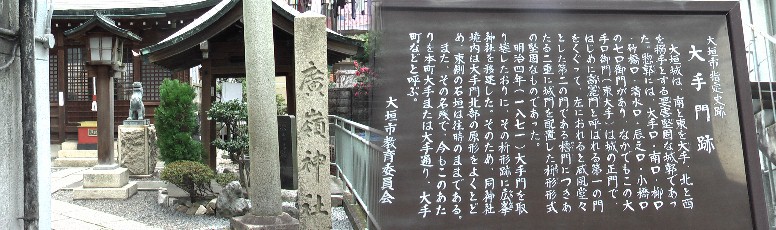 廣嶺神社
大垣市指定史跡
大手門跡
大垣城は、南と東を大手、北と西
を搦手とする要害堅固な城郭であっ
た。総郭には、大手口・南口・柳口
・竹橋口・清水口・辰之口・小橋口
の七口御門があり、なかでもこの大
手口御門(東大手)は城の正門で、
はじめに高麗門と呼ばれる第一の門
をくぐって、左におれると威風堂々
とした第二の門である楼門につきあ
たる二重に城門を配置した枡形形式
の堅固なものであった。
明治四年(一八七一)大手門を取
り壊したおりに、その枡形跡に広峯
神社を移築した。そのため、同神社
境内は大手門北部の原形をよくとど
め、東側の石垣は往時のままである。
また、その名残で、今もこのあた
りを本町大手または大手通り、大手
町などと呼ぶ。
大垣市教育委員会